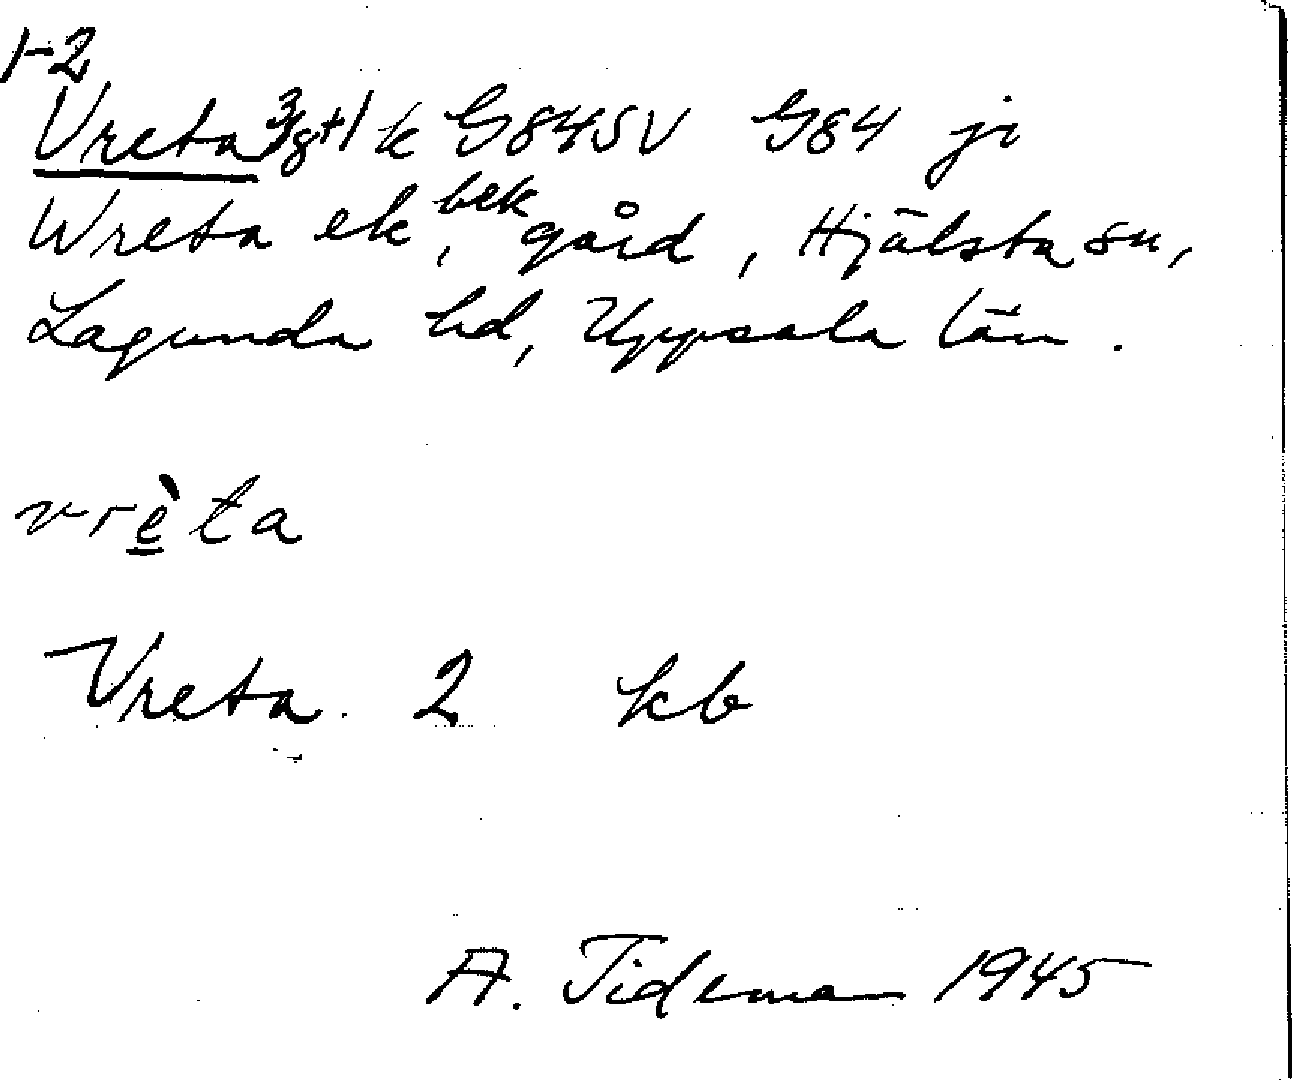 1-2
Vreta 3/8+1 k G84SV G84 ji
Wreta ek, bek gård, Hjälsta sn,
Lagunda hd, Uppsala län.
vrèta
Vreta. 2 kb
A. Tideman 1945